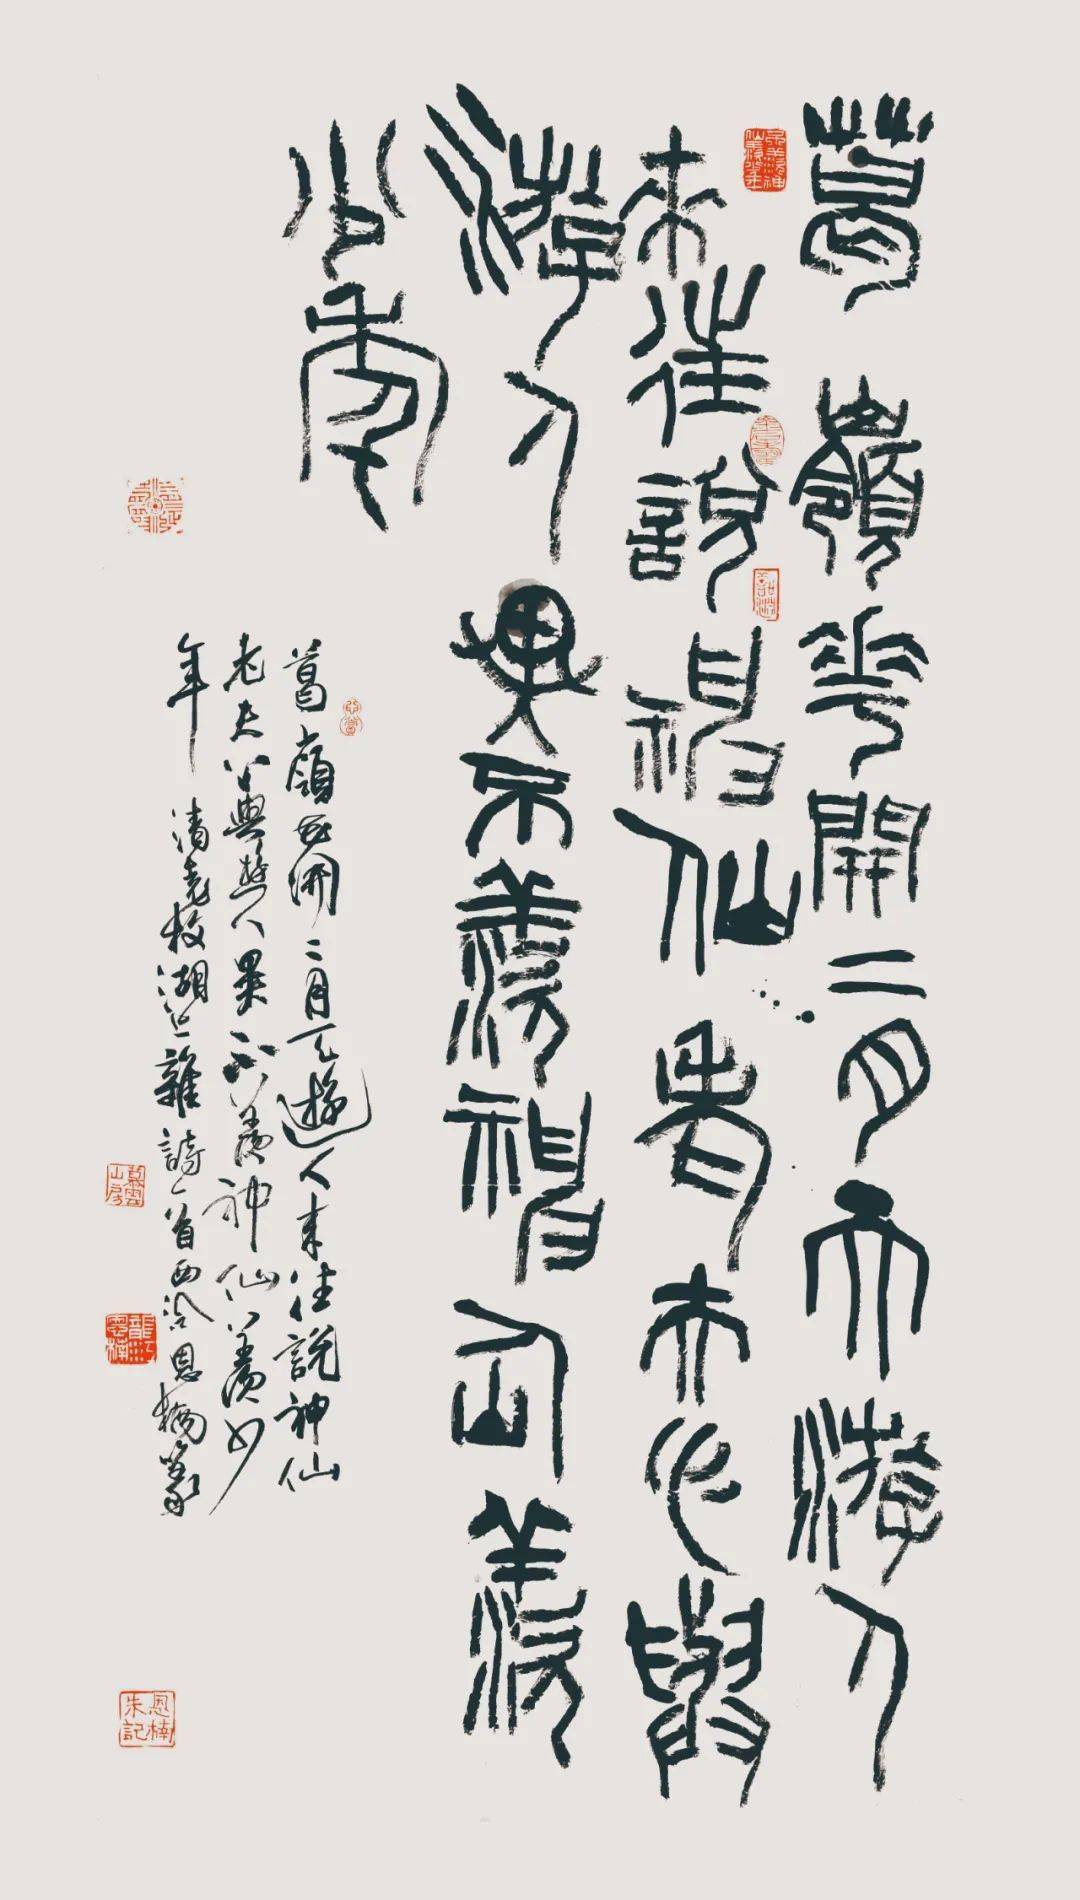 葛嶺花開二月天游人
來往說神仙老夫心與
游人異不羨神仙羨
少年
葛嶺花開二月天遊人來往說神仙
老夫心與遊人異不羨神仙羨少
年 清袁枚湖上雜詩一首西泠恩楠篆
恩楠朱記